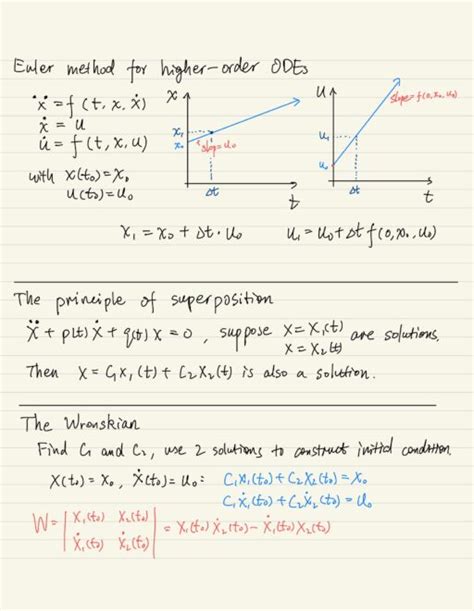 Euler method for higher-order ODEs
ẍ = f(t, x, ẋ)
ẋ = u
u̇ = f(t, x, u)
with x(t₀)=x₀
u(t₀)=u₀
x
x₁
x₀
slope=u₀
Δt
t
u
slope=f(0,x₀,u₀)
u₁
u₀
Δt
t
x₁ = x₀ + Δt · u₀
u₁ = u₀ + Δt f(0, x₀, u₀)
The principle of superposition
ẍ + p(t) ẋ + q(t) x = 0 , suppose x = x₁(t) are solutions,
x = x₂(t)
Then x = C₁x₁(t) + C₂x₂(t) is also a solution.
The Wronskian
Find C₁ and C₂, use 2 solutions to construct initial condition.
x(t₀) = x₀ , ẋ(t₀) = u₀ : C₁x₁(t₀) + C₂x₂(t₀) = x₀
C₁ẋ₁(t₀) + C₂ẋ₂(t₀) = u₀
W = | x₁(t₀) x₂(t₀) | = x₁(t₀) ẋ₂(t₀) − ẋ₁(t₀) x₂(t₀)
| ẋ₁(t₀) ẋ₂(t₀) |